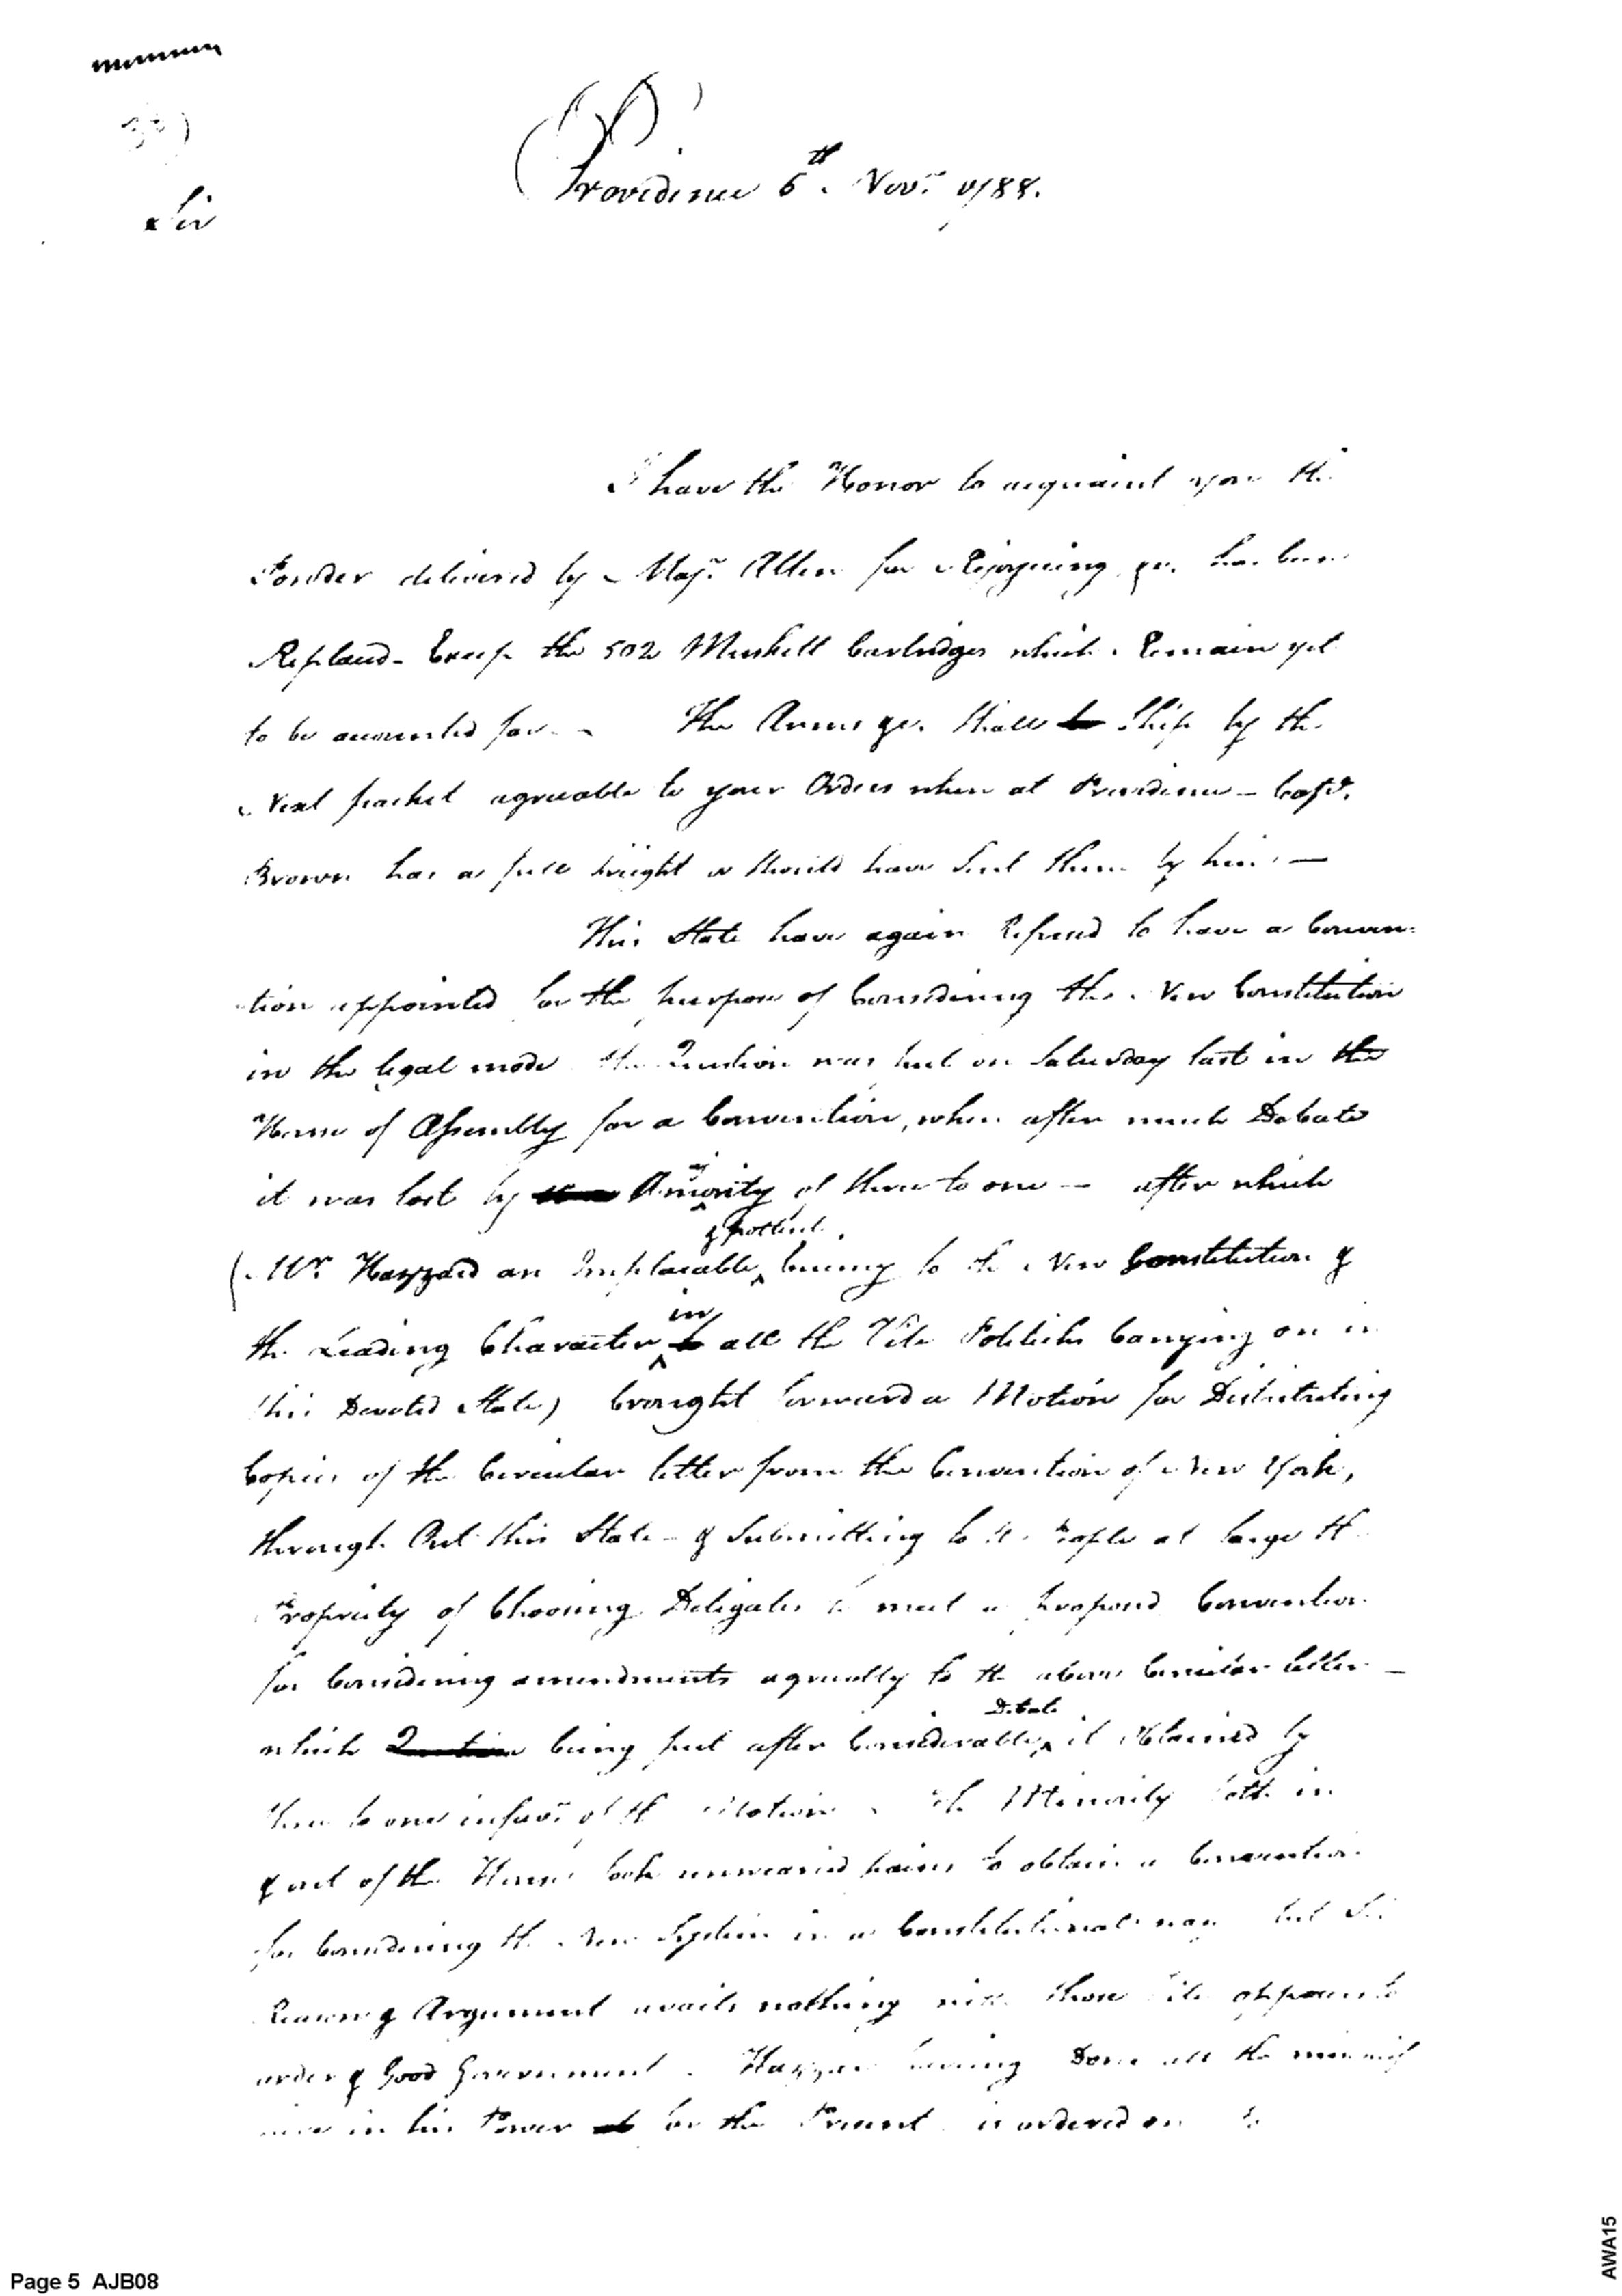 Providence 6th. Novr. 1788.
Sir
I have the Honor to acquaint you the
Powder delivered by Majr. Allen for Rejoycing &c. has been
Replaced - Except the 502 Muskett Cartridges which Remain yet
to be accounted for - The Arms &c. Shall Ship by the
Next packet agreeable to your Orders when at Providence - Capt.
Brown has a full freight or Should have Sent them by him -
This State have again Refused to have a Conven-
tion appointed for the purpose of Considering the New Constitution
in the legal mode the Question was put on Saturday last in the
House of Assembly for a Convention, when after much Debate
it was lost by A Majority of three to one - after which
(Mr. Hazzard an Implacable & potent Enemy to the New Constitution &
the Leading Character in all the Vile Politicks Carrying on in
this Devoted State) brought forward a Motion for Distributing
Copies of the Circular letter from the Convention of New York,
through Out this State - & Submitting to the People at large the
Propriety of Choosing Delegates to meet a proposed Convention
for Considering amendments agreeably to the above Circular letter -
which being put after Considerable Debate it Obtained by
three to one in favr. of the Motion - The Minority both in
& out of the House took unwearied pains to obtain a Convention
for Considering the New System in a Constitutional way but Sir
Reason & Argument avails nothing with those Vile opponents
order & Good Government. Hazzard having Done all the
in his Power for the Present is ordered on to
Page 5 AJB08
AWA15